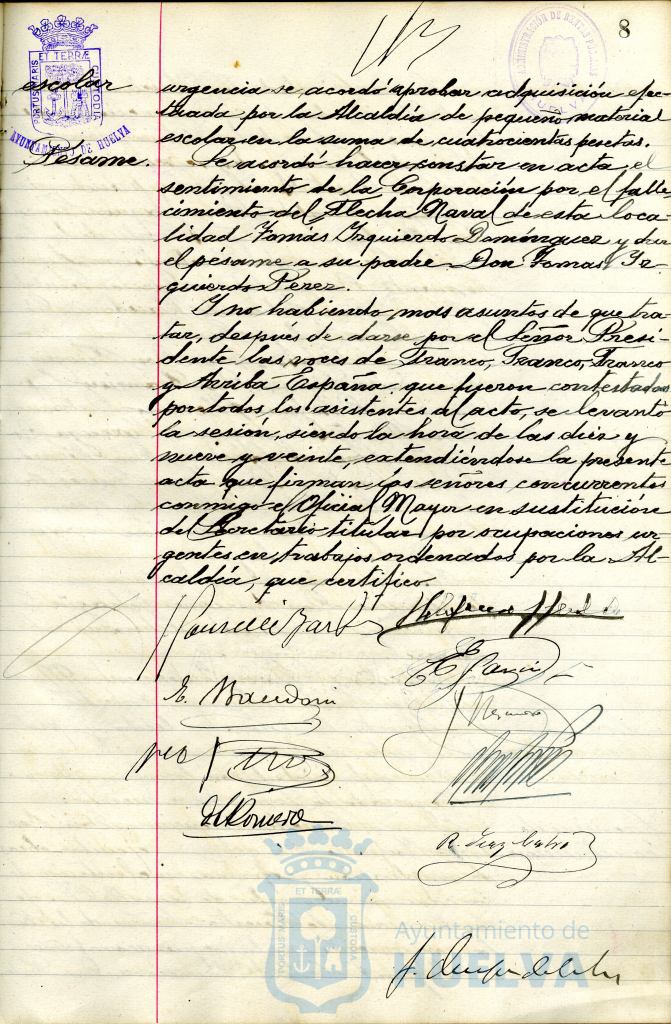 8
ET TERRÆ
PORTUS MARIS
CUSTODIA
AYUNTAMIENTO DE HUELVA
escolar
Pésame.
urgencia se acordó aprobar adquisición efec-
tuada por la Alcaldía de pequeño material
escolar en la suma de cuatrocientas pesetas.
Se acordó hacer constar en acta el
sentimiento de la Corporación por el falle-
cimiento del Flecha Naval de esta loca-
lidad Tomás Izquierdo Domínguez y dar
el pésame a su padre Don Tomas Iz-
quierdo Pérez.
Y no habiendo mas asuntos de que tra-
tar, después de darse por el Señor Presi-
dente las voces de Franco, Franco, Franco
y Arriba España, que fueron contestadas
por todos los asistentes al acto, se levantó
la sesión, siendo la hora de las diez y
nueve y veinte, extendiéndose la presente
acta que firman los señores concurrentes
conmigo el Oficial Mayor en sustitución
del Secretario titular por ocupaciones ur-
gentes en trabajos ordenados por la Al-
caldía, que certifico.
E. García
dl Romero
ET TERRÆ
PORTUS MARIS
CUSTODIA
Ayuntamiento de
HUELVA